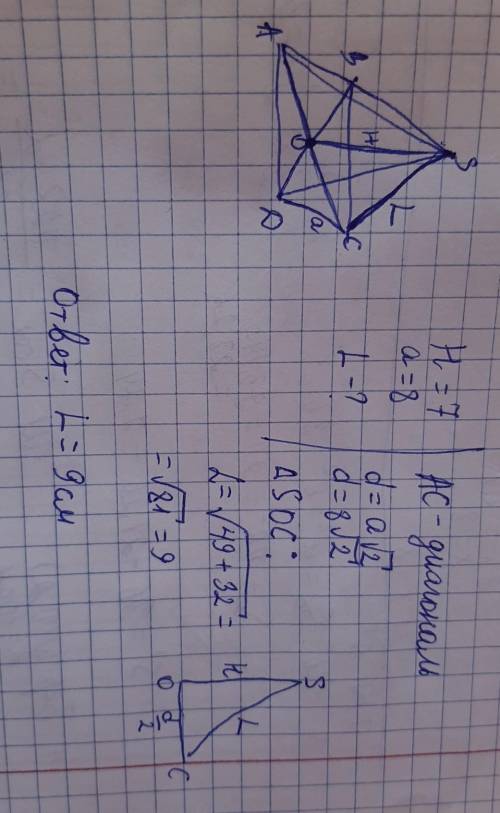 A B S
O H L
D a C
H = 7
a = 8
L - ?
AC - диагональ
d = a√2
d = 8√2
ΔSOC:
L = √49 + 32 =
= √81 = 9
S
H L
O d/2 C
Ответ: L = 9 см